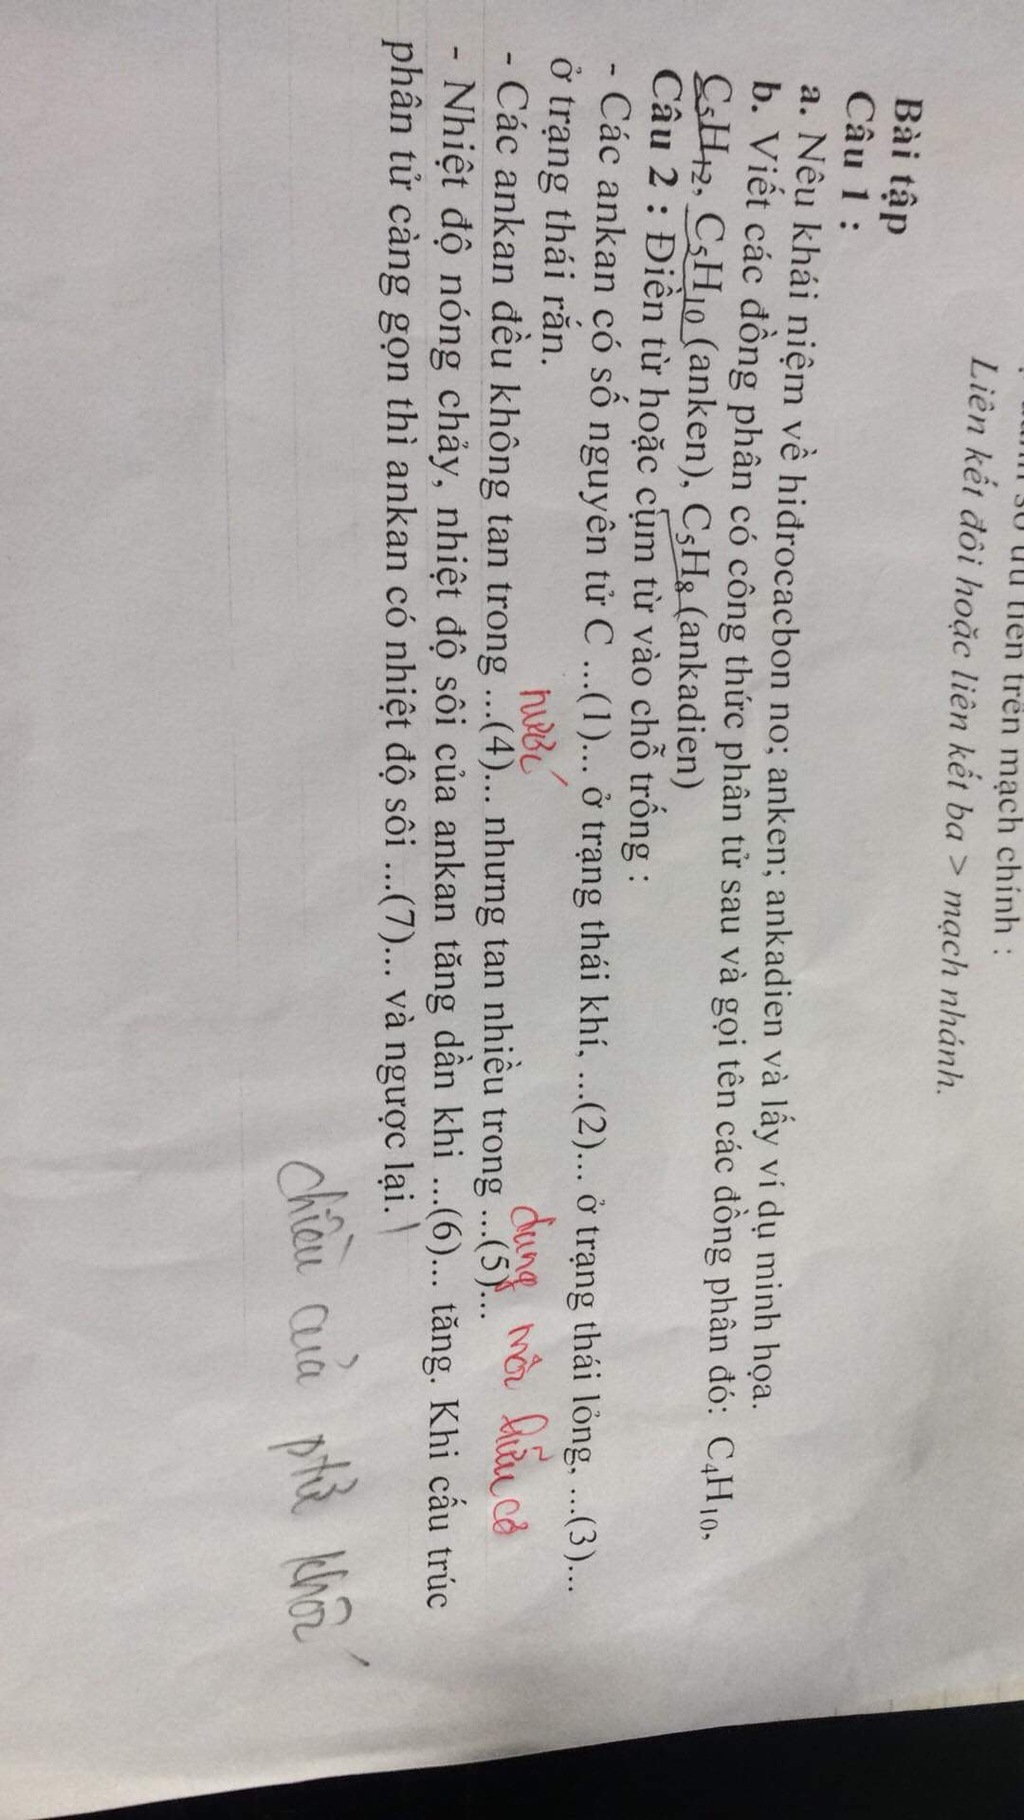 số ưu tiên trên mạch chính :
Liên kết đôi hoặc liên kết ba > mạch nhánh.
Bài tập
Câu 1 :
a. Nêu khái niệm về hiđrocacbon no; anken; ankadien và lấy ví dụ minh họa.
b. Viết các đồng phân có công thức phân tử sau và gọi tên các đồng phân đó: C₄H₁₀,
C₅H₁₂, C₅H₁₀ (anken), C₅H₈ (ankadien)
Câu 2 : Điền từ hoặc cụm từ vào chỗ trống :
- Các ankan có số nguyên tử C ...(1)... ở trạng thái khí, ...(2)... ở trạng thái lỏng, ...(3)...
ở trạng thái rắn.
nước dung môi hữu cơ
- Các ankan đều không tan trong ...(4)... nhưng tan nhiều trong ...(5)...
- Nhiệt độ nóng chảy, nhiệt độ sôi của ankan tăng dần khi ...(6)... tăng. Khi cấu trúc
phân tử càng gọn thì ankan có nhiệt độ sôi ...(7)... và ngược lại.
chiều của ptử khối